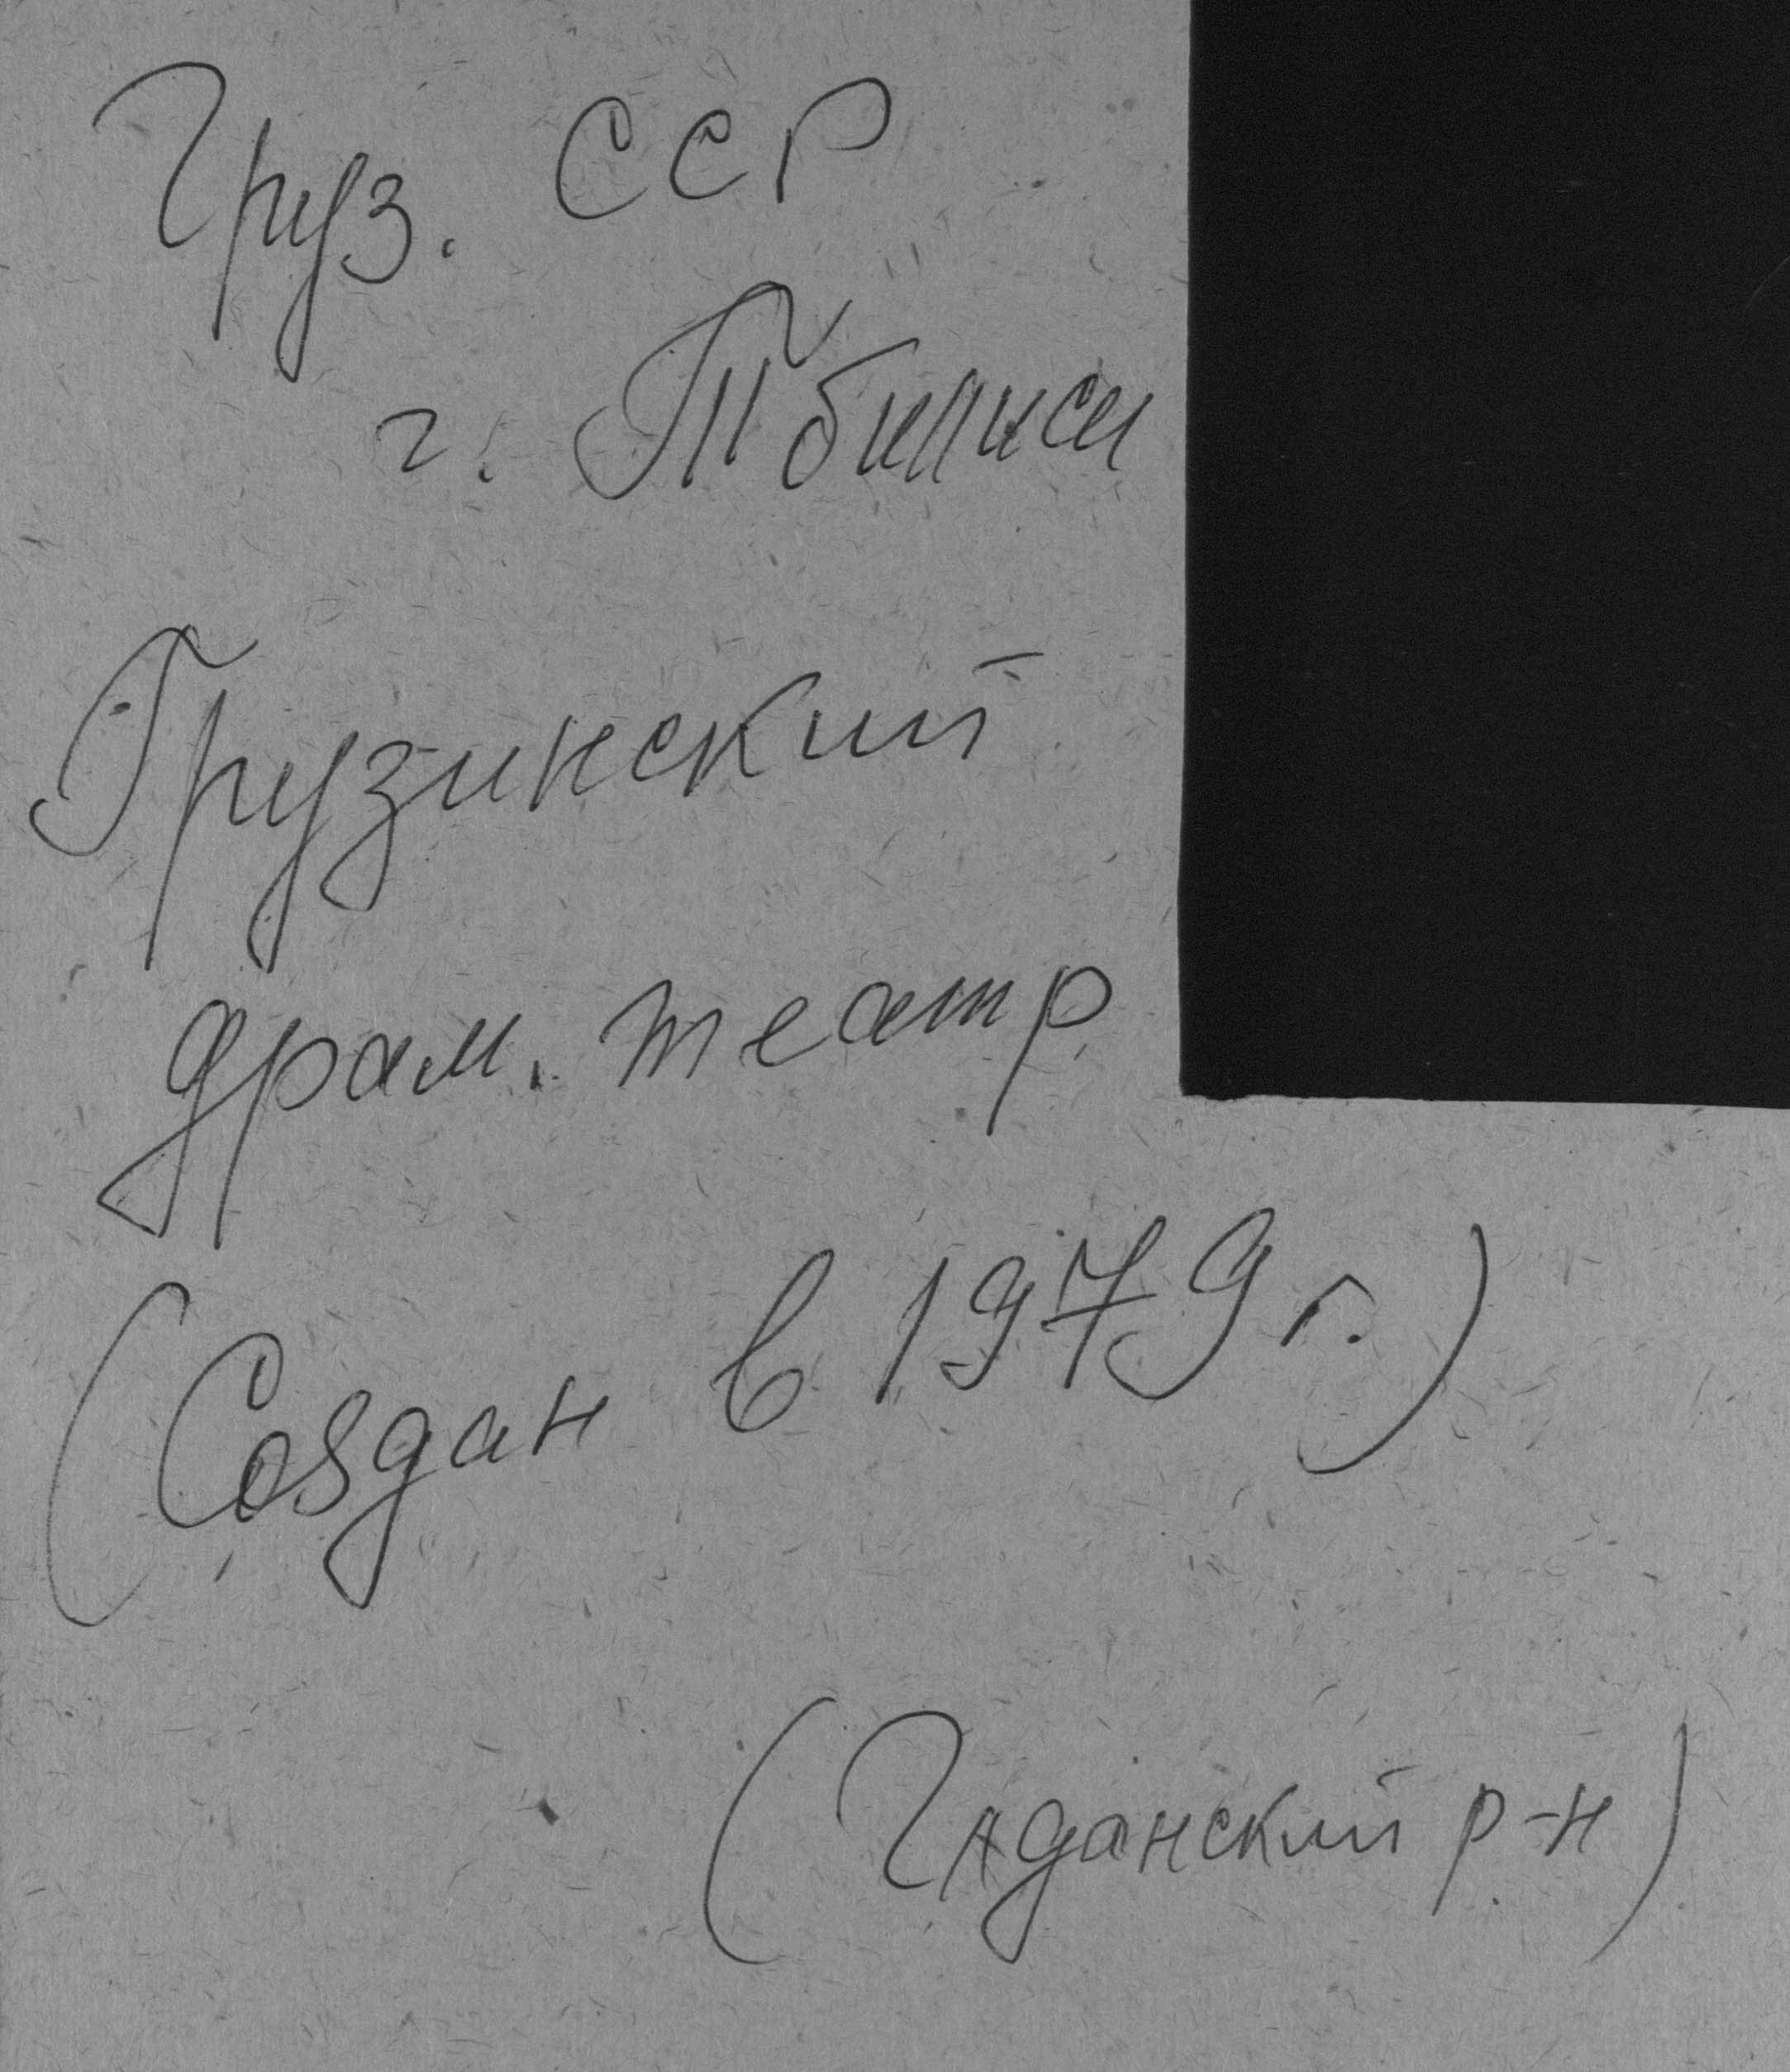 Груз. ССР
г. Тбилиси
Грузинский
драм. театр
(Создан в 1979 г.)
(Глданский р-н)